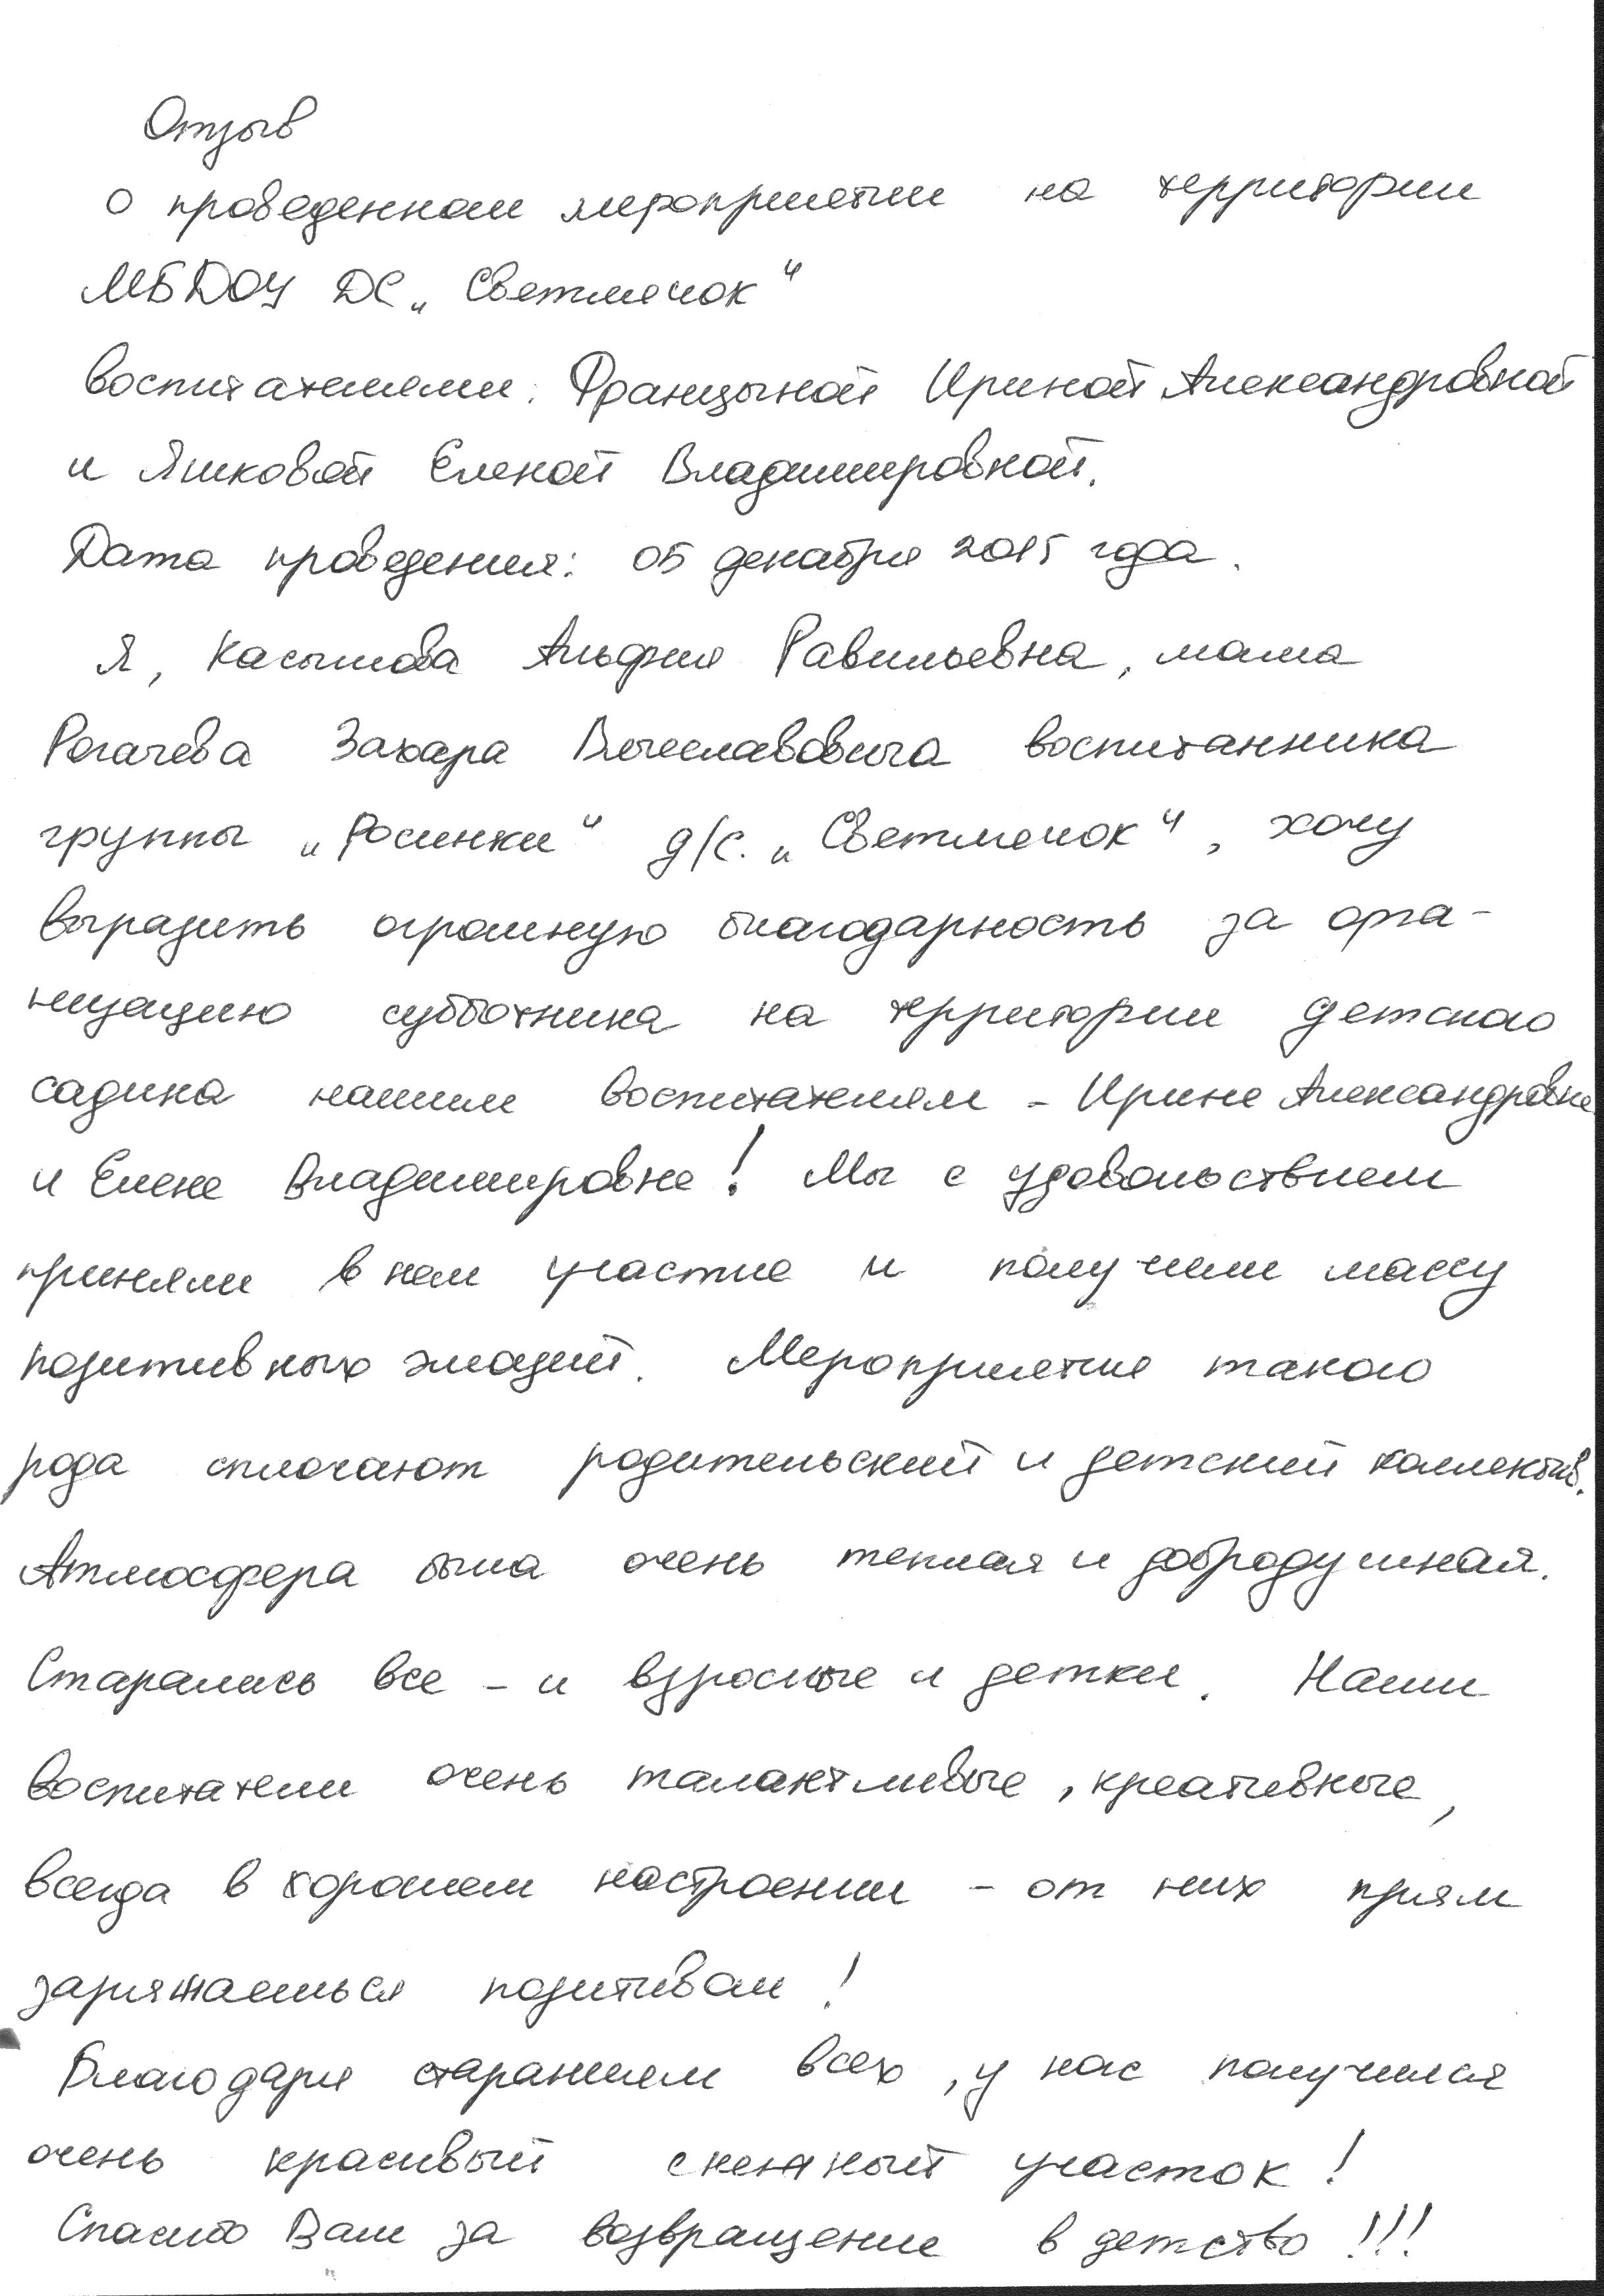 Отзыв
о проведенном мероприятии на территории
МБДОУ ДС „Светлячок“
воспитателями: Францыной Ириной Александровной
и Яшковой Еленой Владимировной.
Дата проведения: 05 декабря 2015 года.
Я, Касымова Альфия Равильевна, мама
Рогачева Захара Вячеславовича воспитанника
группы „Росинки“ д/с. „Светлячок“, хочу
выразить огромную благодарность за орга-
низацию субботника на территории детского
садика нашим воспитателям - Ирине Александровне
и Елене Владимировне! Мы с удовольствием
приняли в нем участие и получили массу
позитивных эмоций. Мероприятие такого
рода сплочают родительский и детский коллектив.
Атмосфера была очень теплая и добродушная.
Старались все - и взрослые и детки. Наши
воспитатели очень талантливые, креативные,
всегда в хорошем настроении - от них прям
заряжаешься позитивом!
Благодаря стараниям всех, у нас получился
очень красивый снежный участок!
Спасибо Вам за возвращение в детство!!!